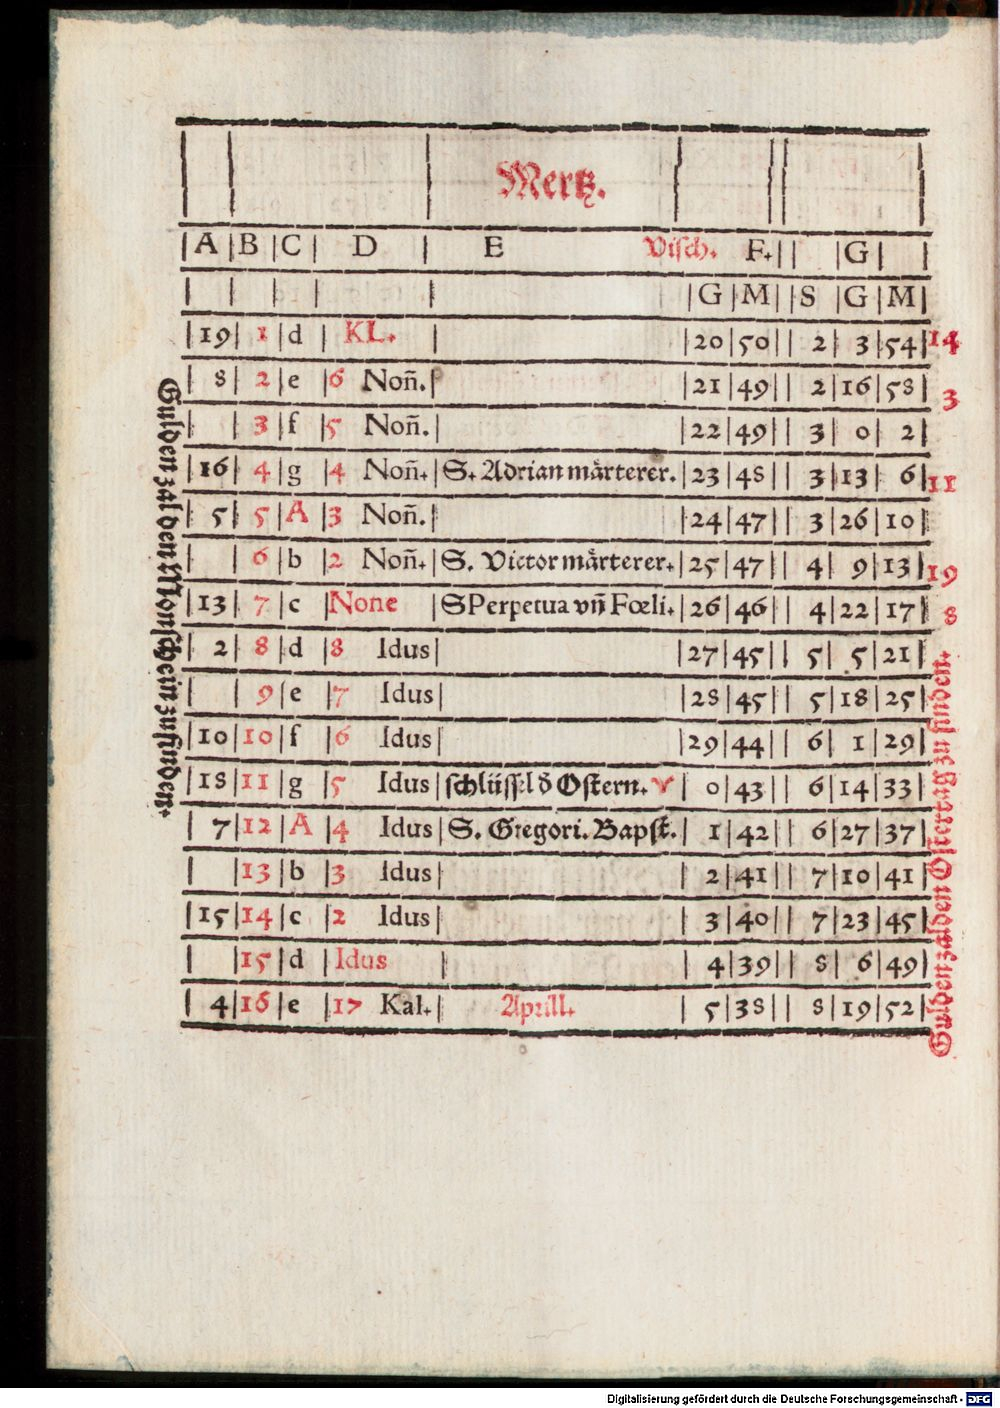 Mertz.
A B C D E Visch. F. G
G M S G M
19 1 d KL. 20 50 2 3 54 14
8 2 e 6 Non̄. 21 49 2 16 58 3
3 f 5 Non̄. 22 49 3 0 2
16 4 g 4 Non̄. S. Adrian mårterer. 23 48 3 13 6 11
5 5 A 3 Non̄. 24 47 3 26 10
6 b 2 Non̄. S. Victor mårterer. 25 47 4 9 13 19
13 7 c None S Perpetua vn̄ Fœli. 26 46 4 22 17 8
2 8 d 8 Idus 27 45 5 5 21
9 e 7 Idus 28 45 5 18 25
10 10 f 6 Idus 29 44 6 1 29
18 11 g 5 Idus schlüssel d̄ Ostern. ♈ 0 43 6 14 33
7 12 A 4 Idus S. Gregori. Bapst. 1 42 6 27 37
13 b 3 Idus 2 41 7 10 41
15 14 c 2 Idus 3 40 7 23 45
15 d Idus 4 39 8 6 49
4 16 e 17 Kal. Aprill. 5 38 8 19 52
Gulden zal den Monschein zufinden.
Gulden zal den Ostertag zu finden.
Digitalisierung gefördert durch die Deutsche Forschungsgemeinschaft - DFG